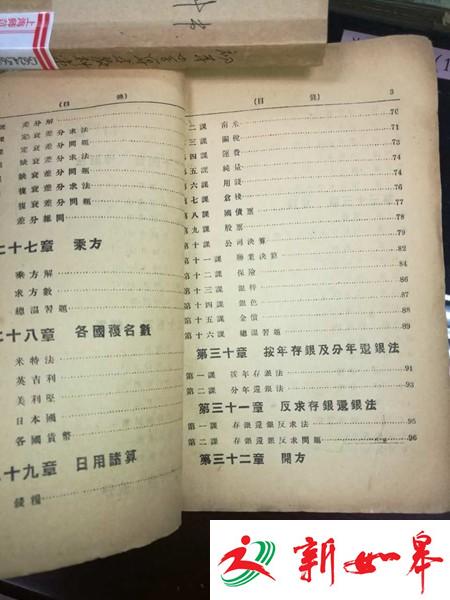 (目 錄)
差分解
定衰差分求法
定衰差分問題
缺衰差分求法
缺衰差分問題
複衰差分求法
複衰差分問題
差分雜問
二十七章 乘方
乘方解
求方數
總温習題
二十八章 各國複名數
米特法
英吉利
美利堅
日本國
各國貨幣
二十九章 日用諸算
錢糧
(目 錄) 3
二 課 南米 70
三 課 關稅 71
第 四 課 運費 73
第 五 課 純量 74
第 六 課 用錢 74
第 七 課 倉棧 76
第 八 課 國債票 77
第 九 課 股票 78
第 十 課 公司決算 79
第 十一 課 聯業決算 82
第 十二 課 保險 84
第 十三 課 銀特 86
第 十四 課 銀色 87
第 十五 課 金價 88
第 十六 課 總温習題 89
第三十章 按年存銀及分年還銀法
第 一 課 按年存銀法 91
第 二 課 分年還銀法 93
第三十一章 反求存銀還銀法
第 一 課 存銀還銀反求法 95
第 二 課 存銀還銀反求問題 96
第三十二章 開方
新如皋